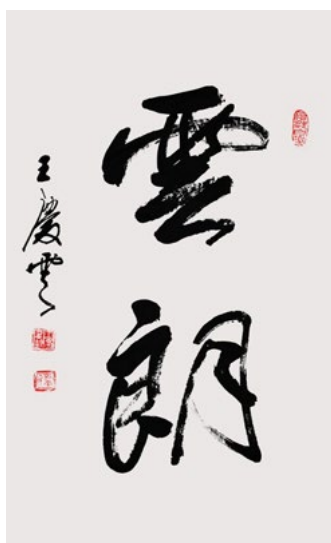 雲朗
王慶雲